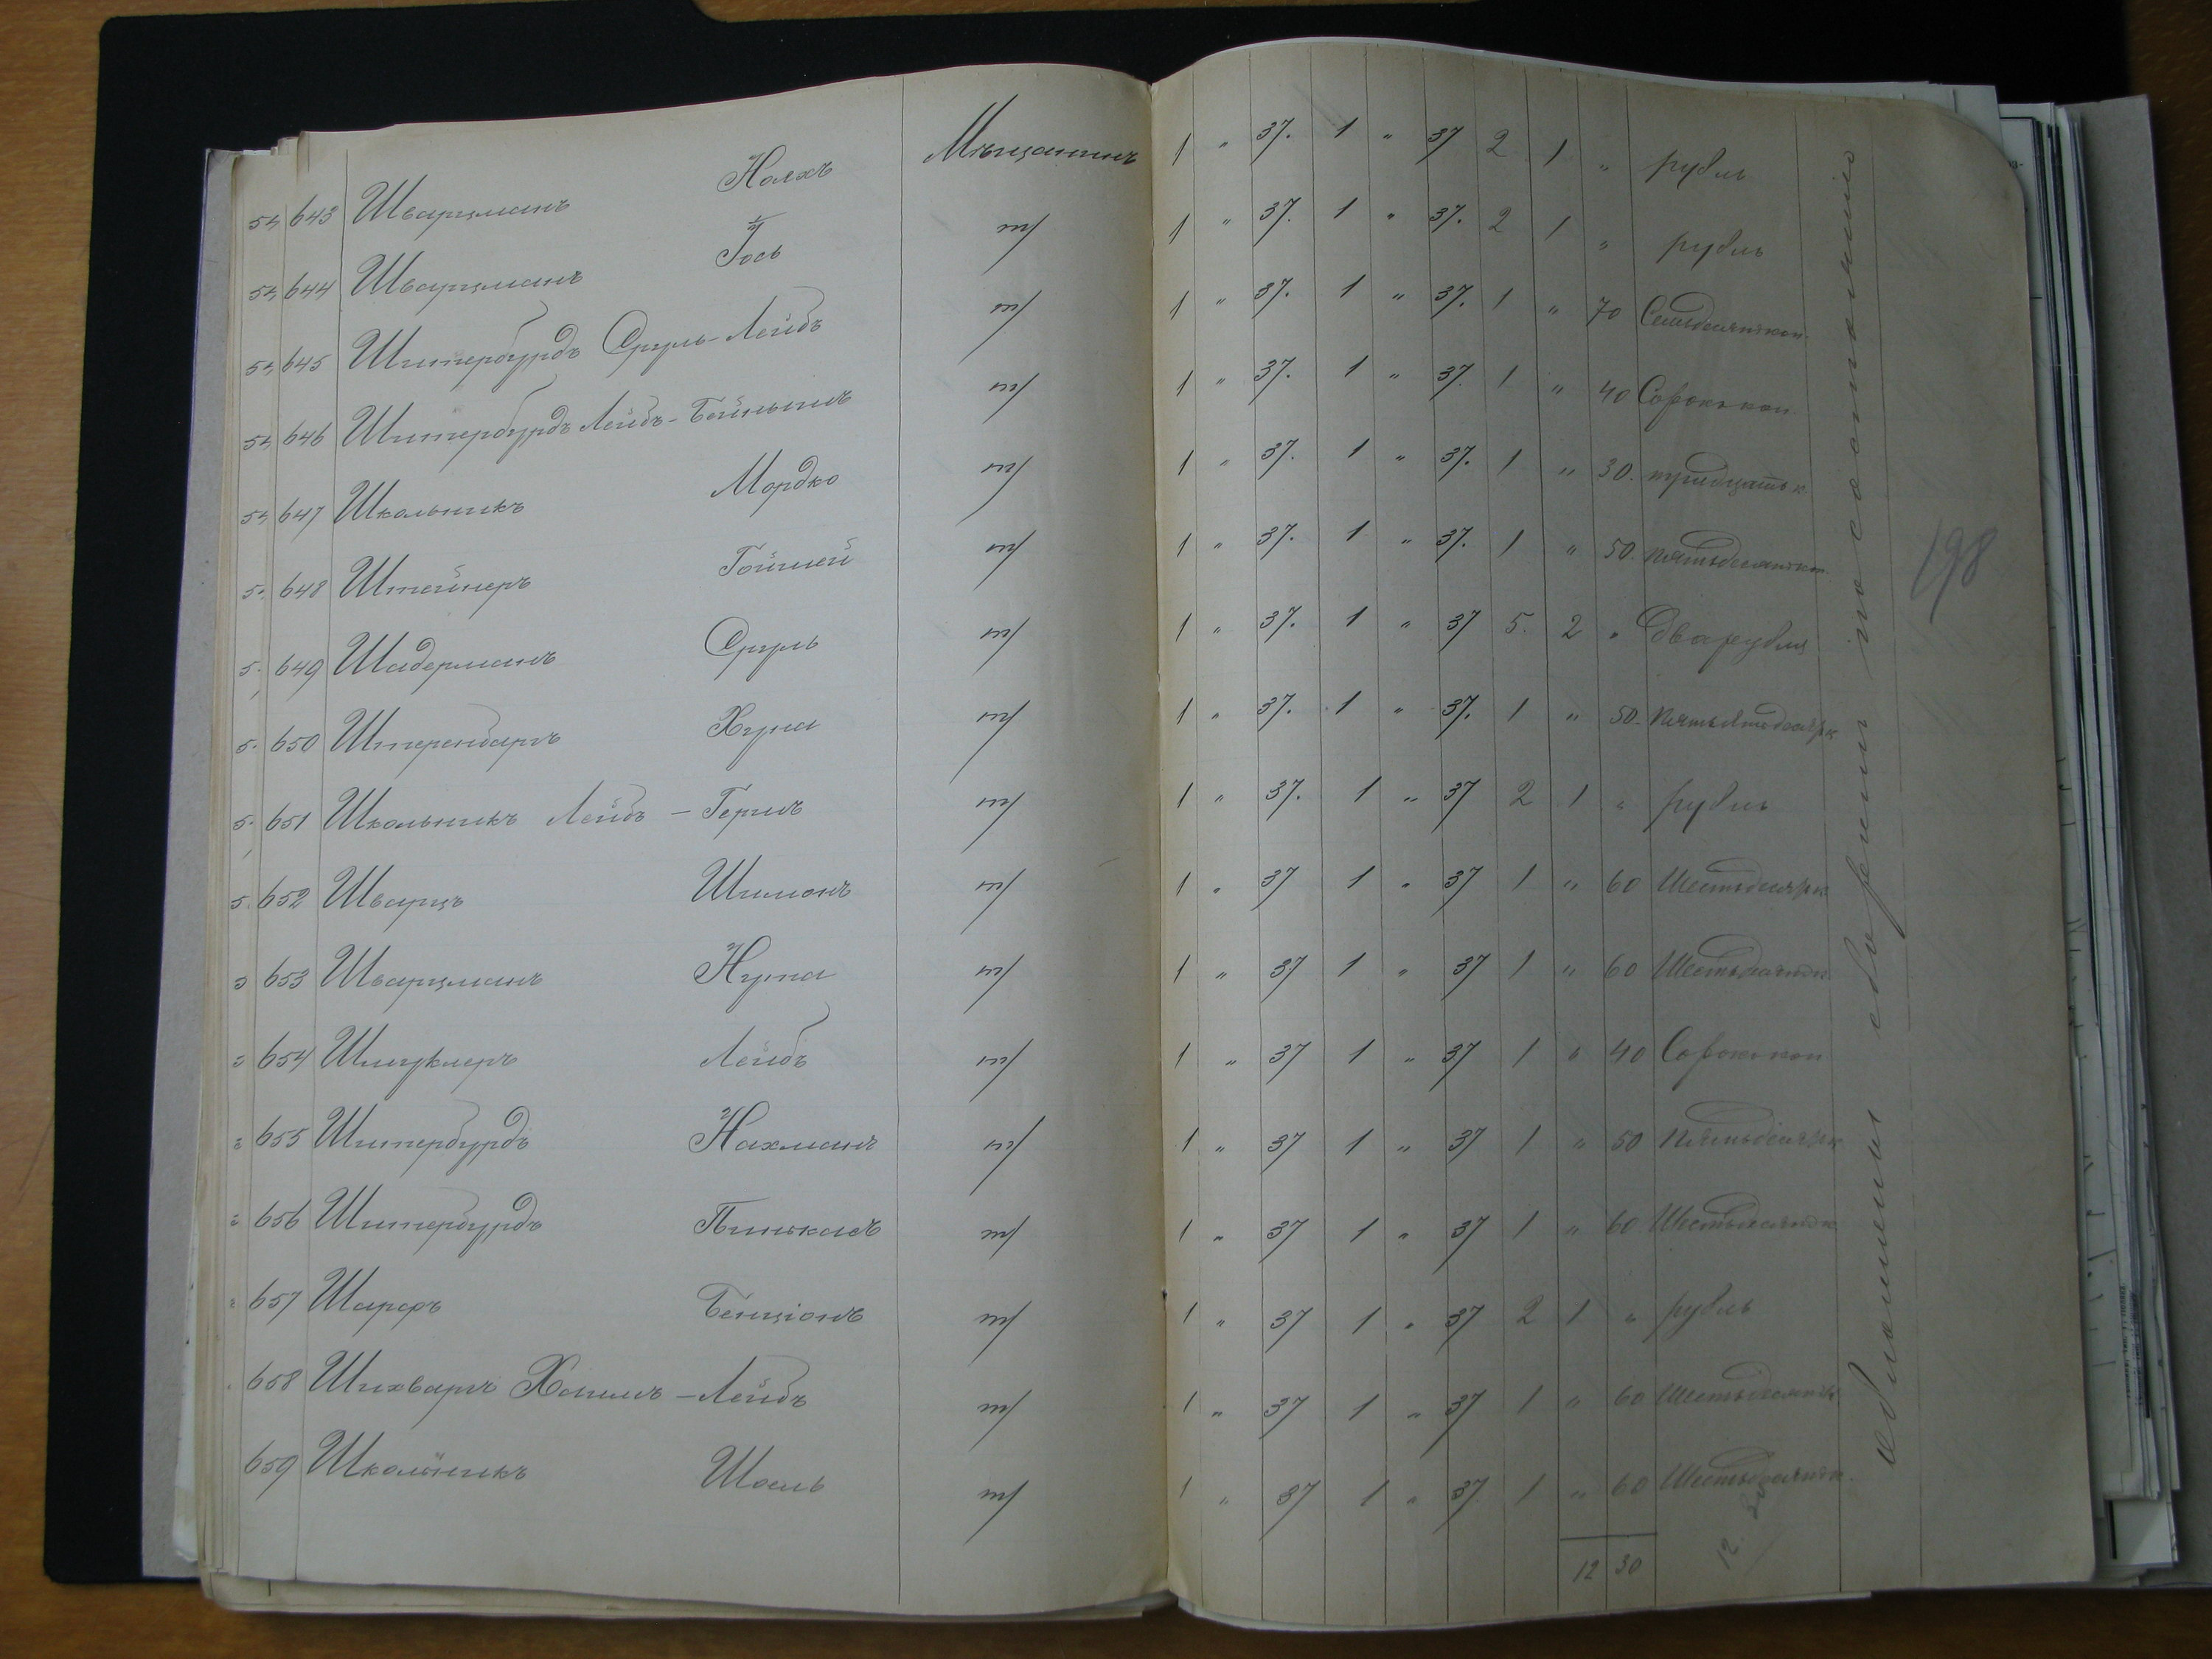 643 Шварцманъ Нолхъ Мѣщанинъ 1 " 37. 1 " 37 2 1 " рубль
644 Шварцманъ Іось т/ 1 " 37. 1 " 37. 2 1 " рубль
645 Штербурдъ Сруль-Лейбъ т/ 1 " 37. 1 " 37. 1 " 70 Семьдесятъ коп.
646 Штербурдъ Лейбъ- т/ 1 " 37. 1 " 37. 1 " 40 Сорокъ коп
647 Школьникъ Мордко т/ 1 " 37. 1 " 37. 1 " 30. тридцать к.
648 Штейнеръ т/ 1 " 37. 1 " 37. 1 " 50. пятьдесятъ коп.
649 Шадерманъ Сруль т/ 1 " 37. 1 " 37 5. 2 " Два рубля
650 Штеренбаргъ Хуна т/ 1 " 37. 1 " 37. 1 " 50.
651 Школьникъ Лейбъ - Гершъ т/ 1 " 37. 1 " 37 2 1 " рубль
652 Шварцъ Шимонъ т/ 1 " 37 1 " 37 1 " 60 Шестьдесятъ к
653 Шварцманъ Нута т/ 1 " 37 1 " 37 1 " 60 Шестьдесятъ к
654 Шмуклеръ Лейбъ т/ 1 " 37 1 " 37 1 " 40 Сорокъ коп
655 Штербурдъ Нахманъ т/ 1 " 37 1 " 37 1 " 50 Пятьдесятъ к
656 Штербурдъ Пинькасъ т/ 1 " 37 1 " 37 1 " 60 Шестьдесятъ к
657 Шарфъ Бенціонъ т/ 1 " 37 1 " 37 2 1 " рубль
658 Шихваргъ Хаимъ - Лейбъ т/ 1 " 37 1 " 37 1 " 60 Шестьдесятъ к
659 Школьникъ Шоель т/ 1 " 37 1 " 37 1 " 60 Шестьдесятъ к.
12 30
12. 30
по состоянію
198